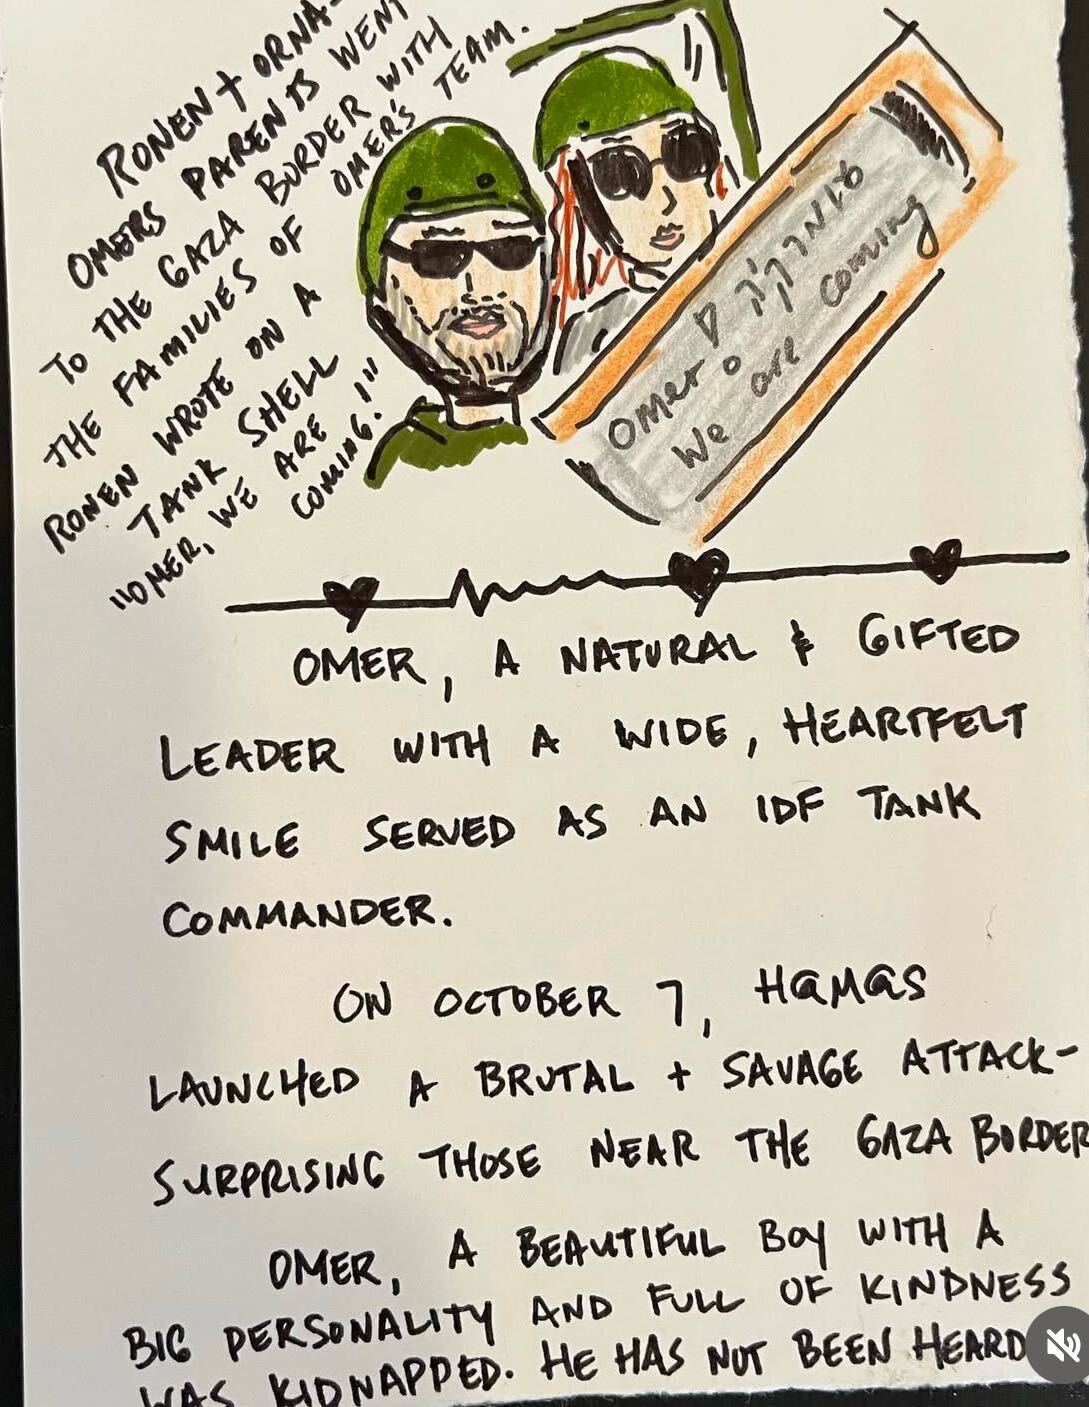 RONEN + ORNA-
OMERS PARENTS WENT
TO THE GAZA BORDER WITH
THE FAMILIES OF OMER'S TEAM.
RONEN WROTE ON A
TANK SHELL
"OMER, WE ARE
COMING!"
Omer
We are coming
OMER, A NATURAL & GIFTED
LEADER WITH A WIDE, HEARTFELT
SMILE SERVED AS AN IDF TANK
COMMANDER.
ON OCTOBER 7, H@M@S
LAUNCHED A BRUTAL + SAVAGE ATTACK-
SURPRISING THOSE NEAR THE GAZA BORDER
OMER, A BEAUTIFUL BOY WITH A
BIG PERSONALITY AND FULL OF KINDNESS
WAS KIDNAPPED. HE HAS NOT BEEN HEARD